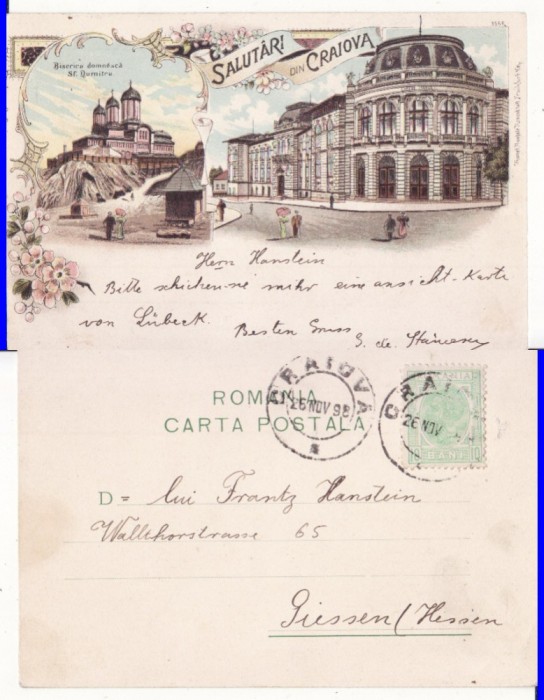 Biserica domnéscă
Sf. Dumitru
SALUTĂRI
DIN CRAIOVA
Herrn Hanstein
Bitte schicken-sie mihr eine ansicht-Karte
von Lübeck. Besten Gruss
G. de
CRAIOVA
26 NOV 98
CRAI
26 NOV
ROMANIA
CARTA POSTALA
BANI
D= lui Frantz Hanstein
Wallthorstrasse 65
Giessen (Hessen